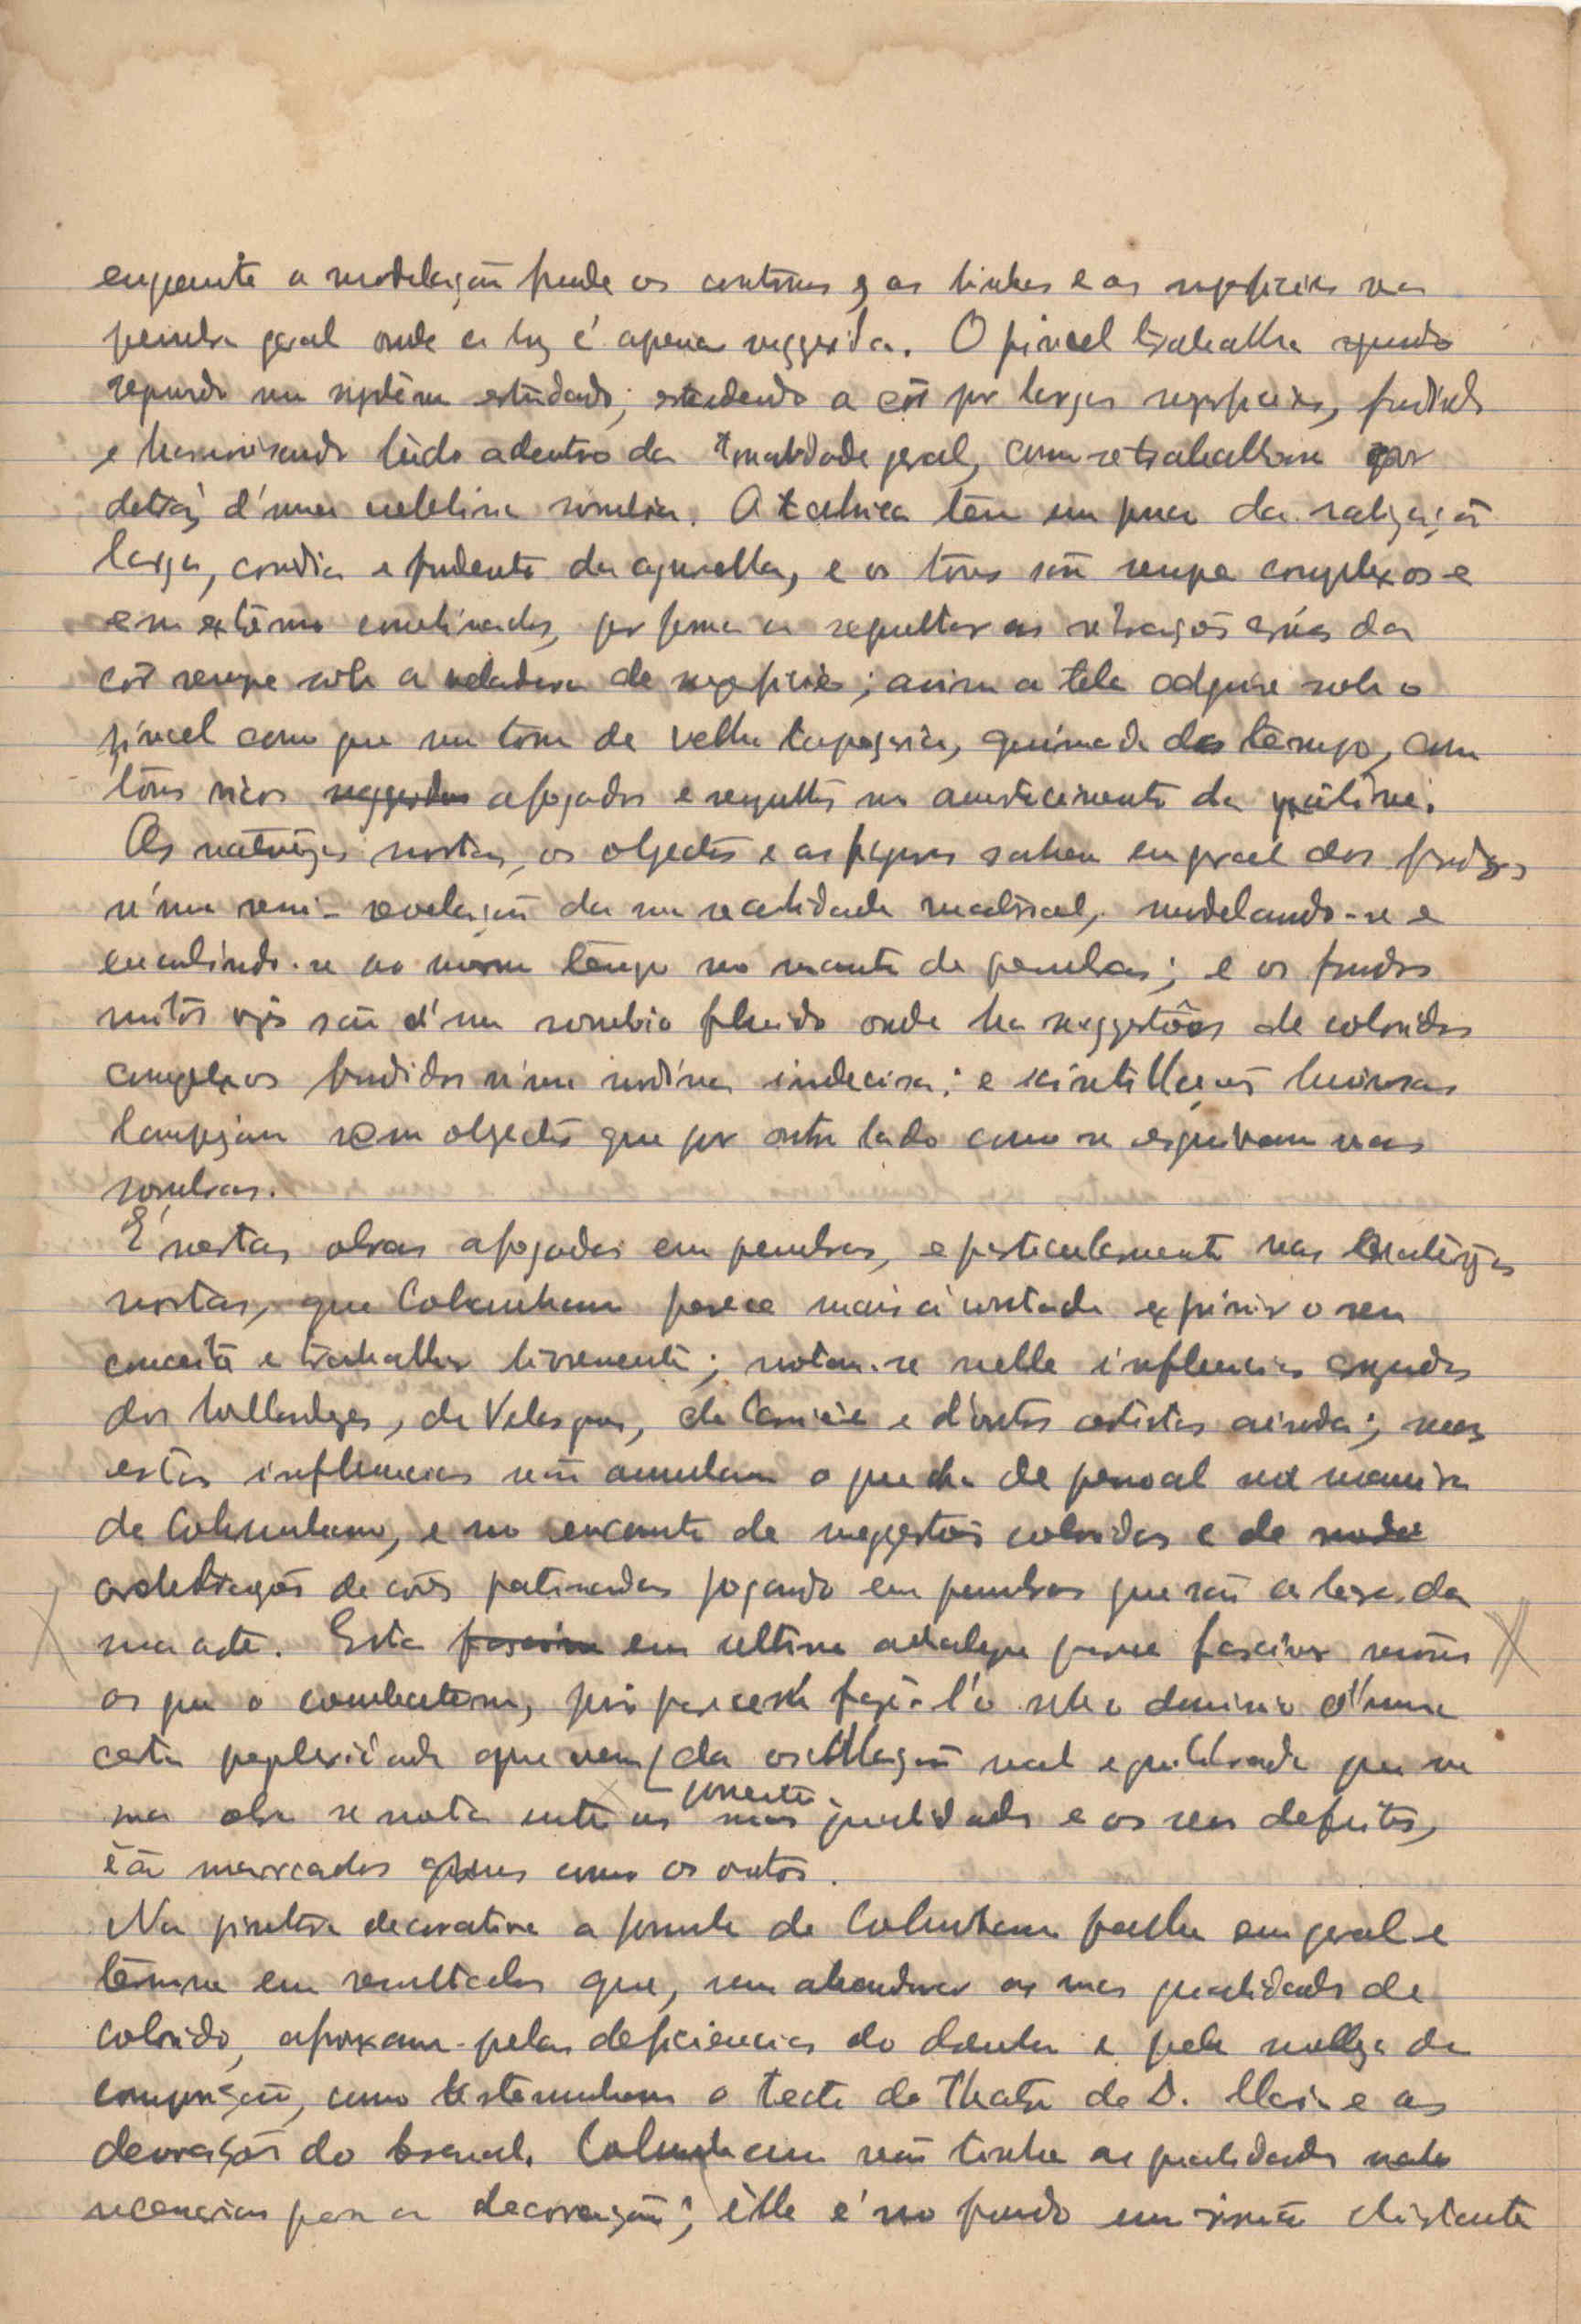 emquanto a modelação funde os contornos e as linhas e as superficies na
penumbra geral onde a luz é apenas suggerida. O pincel trabalha
segundo um systema estudado; estendendo a côr por largas superficies, fundindo
e harmonisando tudo adentro da tonalidade geral, como se trabalhasse por
detraz d'uma neblina sombria. A technica tem um pouco da realização
larga, e fundente da aguarella, e os tons são sempre complexos e
em extremo combinados, por forma a sepultar as vibrações cruas da
côr sempre sob a veladura de superficie; assim a tela adquire sob o
pincel como que um tom de velha tapeçaria, queimada do tempo, com
tons ricos suggeridos afogados e sepultos no amortecimento da patine.
As naturezas mortas, os objectos e as figuras sahem em geral dos fundos
n'uma semi-revelação da sua realidade material, modelando-se e
encobrindo-se ao mesmo tempo no manto de penumbras; e os fundos
muitas vezes são d'um sombrio fluido onde ha suggestões de coloridos
complexos fundidos n'uma surdina indecisa; e scintillações luminosas
lampejam sem objectos que por outro lado como se esquivam nas
sombras.
É nestas obras afogadas em penumbras, e particularmente nas naturezas
mortas, que Columbano parece mais á vontade exprimir o seu
conceito e trabalhar livremente; notam-se nelle influencias
dos hollandezes, de Velasquez, de Carrière e d'outros artistas ainda; mas
estas influencias não annulam o que ha de pessoal na maneira
de Columbano, e no encanto de suggestões coloridas e de
orchestrações de côres patinadas jogando em penumbras que são a base da
sua arte. Esta fascina em ultima analyse parece fascinar mesmo
os que o combatem, pois parecem fazê-l'o sob o dominio d'uma
certa perplexidade que vem da oscillação mal equilibrada que na
sua obra se nota entre as suas qualidades e os seus defeitos,
tão marcados umas como os outros.
Na pintura decorativa a formula de Columbano falha em geral e
termina em resultados que, sem abandonar as suas qualidades de
colorido, afrouxam pelas deficiencias do desenho e pela molleza da
composição, como testemunham o tecto do Theatro de D. Maria e as
decorações do Columbano não tinha as qualidades
necessarias para a decoração; êlle é no fundo um irmão distante